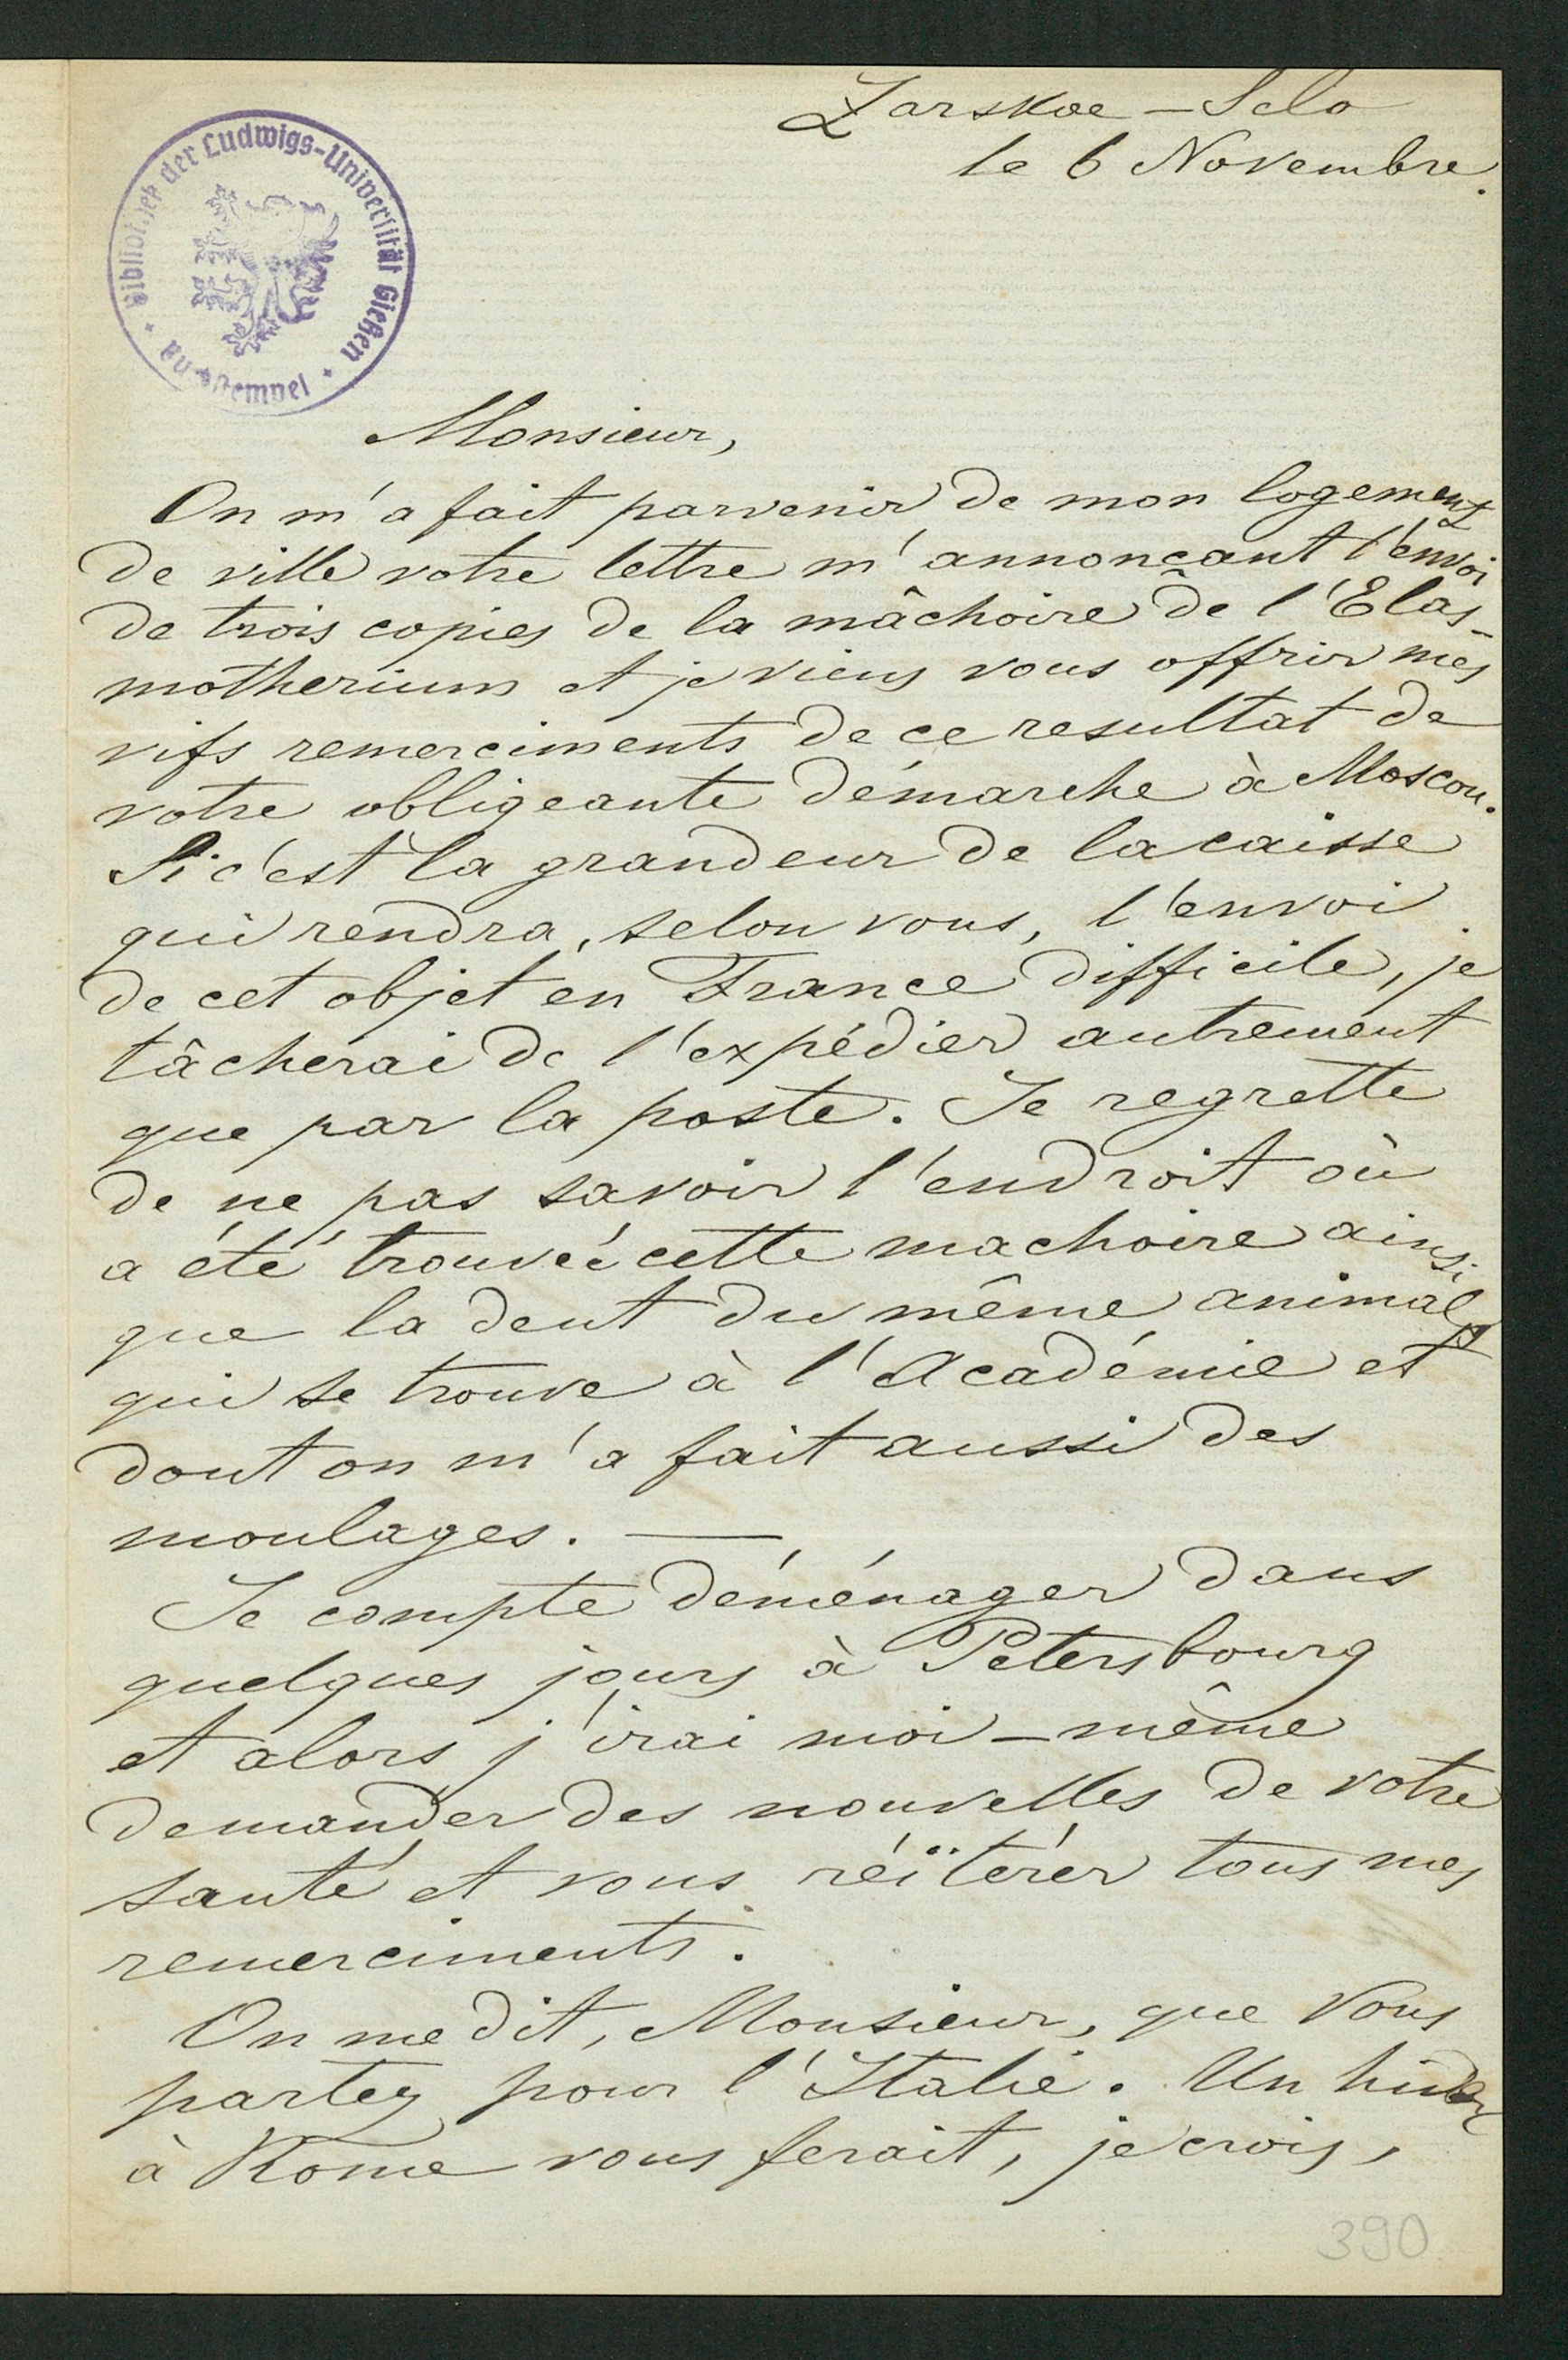 Zarskoe-Selo
le 6 Novembre.
Bibliothek der Ludwigs-Universität Gießen
Monsieur,
On m'a fait parvenir de mon logement
de ville votre lettre m'annonçant l'envoi
de trois copies de la mâchoire de l'Elas-
motherium et je viens vous offrir mes
vifs remerciments de ce resultat de
votre obligeante démarche à Moscou.
Si c'est la grandeur de la caisse
qui rendra, selon vous, l'envoi
de cet objet en France difficile, je
tâcherai de l'expédier autrement
que par la poste. Je regrette
de ne pas savoir l'endroit où
a été trouvée cette machoire ainsi
que la dent du même animal
qui se trouve à l'Académie et
dont on m'a fait aussi des
moulages. —
Je compte déménager dans
quelques jours à Petersbourg
et alors j'irai moi-même
demander des nouvelles de votre
santé et vous réïtérer tous mes
remerciments.
On me dit, Monsieur, que Vous
partez pour l'Italie. Un
à Rome vous ferait, je crois,
390